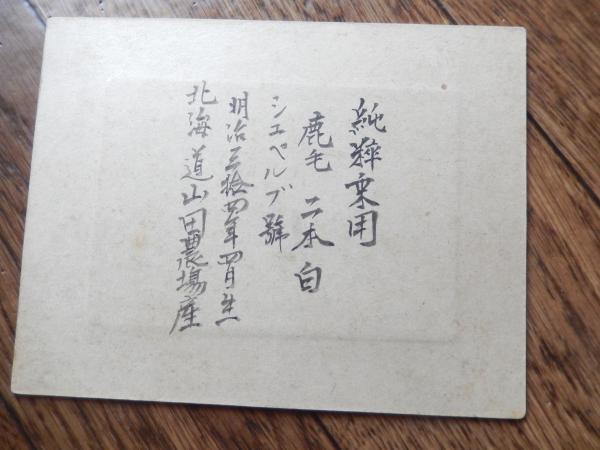 純粹乗用
鹿毛 二本白
シエペルブ號
明治三拾四年四月生
北海道山田農場産